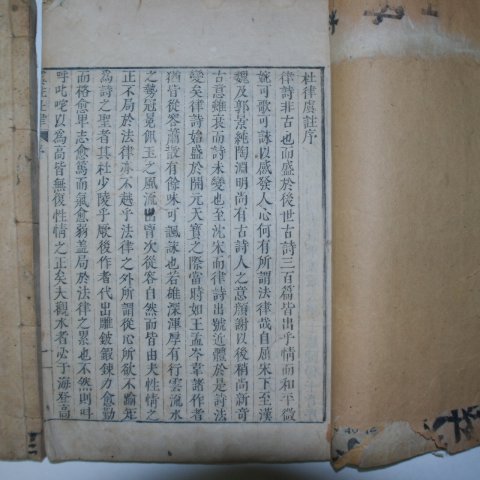 杜律虞註序
律詩非古也而盛於後世古詩三百篇皆出乎情而和平微
婉可歌可詠以感發人心何有所謂法律哉自屈宋下至漢
魏及郭景純陶淵明尚有古詩人之意顏謝以後稍尚新奇
古意雖衰而詩未變也至沈宋而律詩出號近體於是詩法
變矣律詩始盛於開元天寶之際當時如王孟岑韋諸作者
猶皆從容蕭散有餘味可諷詠也若雄深渾厚有行雲流水
之勢冠冕佩玉之風流出胷次從容自然而皆由夫性情之
正不局於法律亦不越乎法律之外所謂從心所欲不踰矩
為詩之聖者其杜少陵乎厥後作者代出雕鎪鍛鍊力愈勤
而格愈卑志愈篤而氣愈弱盖局於法律之累也不然則叫
呼叱咤以為高皆無復性情之正矣夫觀水者必于海登高
虞註杜律 序